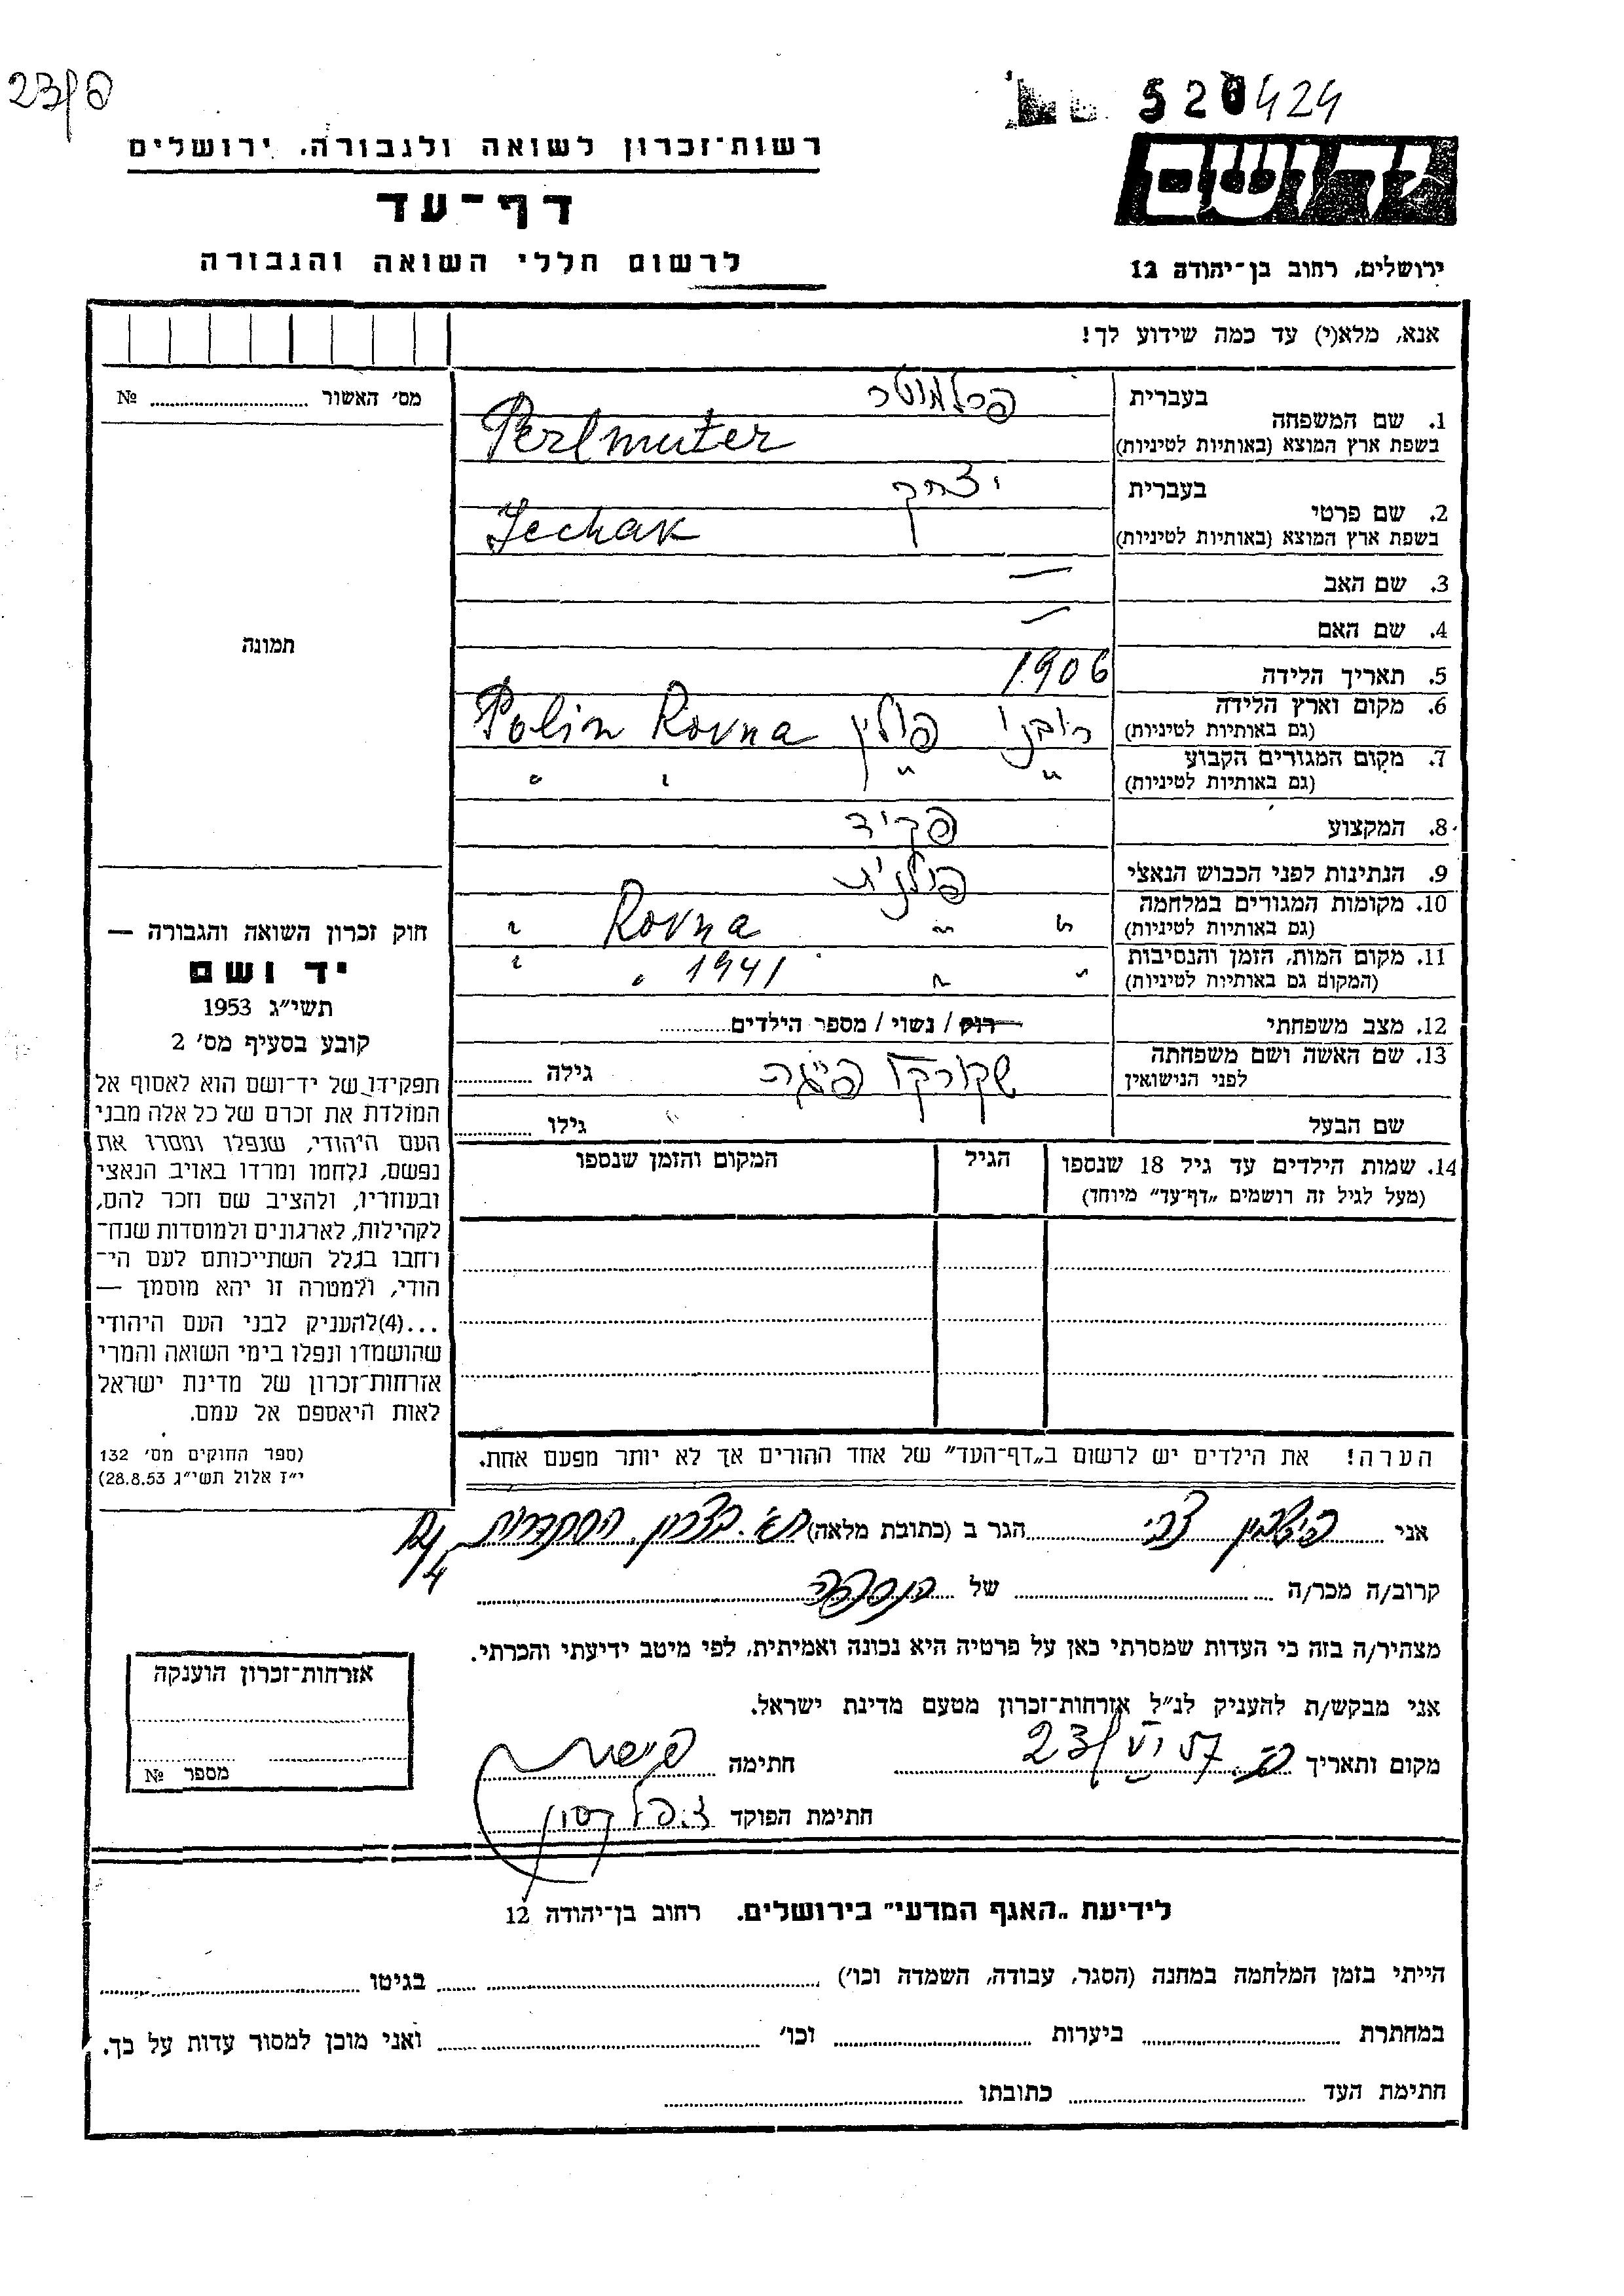 23/פ
520424
רשות־זכרון לשואה ולגבורה, ירושלים
יד ושם
דף־עד
לרשום חללי השואה והגבורה
ירושלים, רחוב בן־יהודה 12
אנא, מלא(י) עד כמה שידוע לך!
מס׳ האשור № ........
1. שם המשפחה בעברית פרלמוטר
בשפת ארץ המוצא (באותיות לטיניות) Perlmuter
2. שם פרטי בעברית יצחק
בשפת ארץ המוצא (באותיות לטיניות) Jechak
3. שם האב —
4. שם האם —
5. תאריך הלידה 1906
6. מקום וארץ הלידה (גם באותיות לטיניות) רובנו פולין Rovna Polin
7. מקום המגורים הקבוע (גם באותיות לטיניות) " " " "
8. המקצוע פקיד
9. הנתינות לפני הכבוש הנאצי פולנית
10. מקומות המגורים במלחמה (גם באותיות לטיניות) " " Rovna "
11. מקום המות, הזמן והנסיבות (המקום גם באותיות לטיניות) " " 1941 " "
12. מצב משפחתי רוק / נשוי / מספר הילדים........
13. שם האשה ושם משפחתה לפני הנישואין פייגה גילה ........
שם הבעל גילו ........
14. שמות הילדים עד גיל 18 שנספו הגיל המקום והזמן שנספו
(מעל לגיל זה רושמים „דף־עד״ מיוחד)
תמונה
חוק זכרון השואה והגבורה —
יד ושם
תשי״ג 1953
קובע בסעיף מס׳ 2
תפקידו של יד־ושם הוא לאסוף אל
המולדת את זכרם של כל אלה מבני
העם היהודי, שנפלו ומסרו את
נפשם, נלחמו ומרדו באויב הנאצי
ובעוזריו, ולהציב שם וזכר להם,
לקהילות, לארגונים ולמוסדות שנח־
רחבו בגלל השתייכותם לעם הי־
הודי, ולמטרה זו יהא מוסמך —
...(4)להעניק לבני העם היהודי
שהושמדו ונפלו בימי השואה והמרי
אזרחות־זכרון של מדינת ישראל
לאות היאספם אל עמם.
(ספר החוקים מס׳ 132
י״ז אלול תשי״ג 28.8.53)
הערה! את הילדים יש לרשום ב„דף־העד״ של אחד ההורים אך לא יותר מפעם אחת.
אני צבי הגר ב (כתובת מלאה) ת״א. בצרון, ההסתדרות
קרוב/ה מכר/ה של הנספה
מצהיר/ה בזה כי העדות שמסרתי כאן על פרטיה היא נכונה ואמיתית, לפי מיטב ידיעתי והכרתי.
אני מבקש/ת להעניק לנ״ל אזרחות־זכרון מטעם מדינת ישראל.
מקום ותאריך 23/VI 57 חתימה
חתימת הפוקד
אזרחות־זכרון הוענקה
מספר №
לידיעת „האגף המדעי״ בירושלים. רחוב בן־יהודה 12
הייתי בזמן המלחמה במחנה (הסגר, עבודה, השמדה וכו׳) ........ בגיטו ........
במחתרת ........ ביערות ........ וכו׳ ........ ואני מוכן למסור עדות על כך.
חתימת העד ........ כתובתו ........